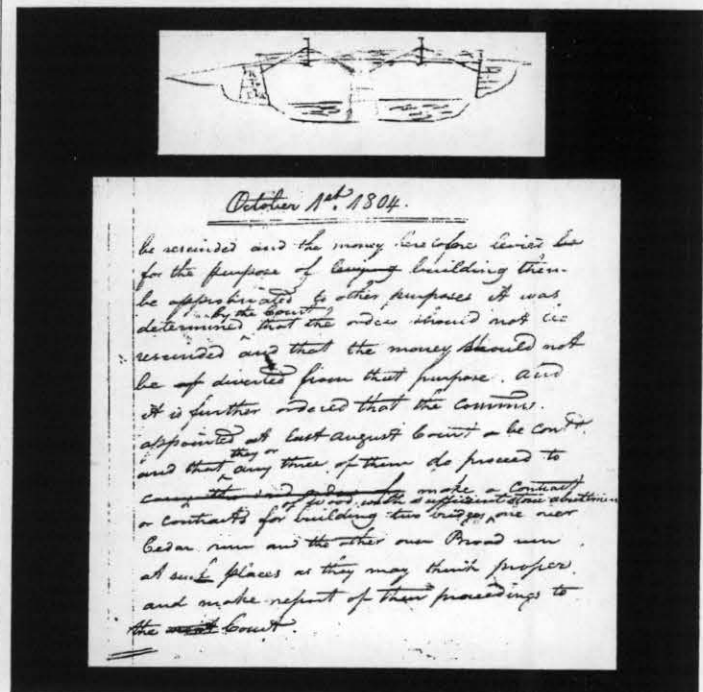 October 1st. 1804.
be rescinded and the money heretofore levied
for the purpose of levying building them
be appropriated to other purposes it was
by the Court
determined that the order should not be
rescinded and that the money should not
be diverted from that purpose. and
it is further ordered that the commrs.
appointed at last August Court be contd.
they or
and that any three of them do proceed to
carry this make a contract
of wood, with sufficient stone abutments
or contracts for building two bridges, one over
Cedar run and the other over Broad run
at such places as they may think proper
and make report of their proceedings to
the next Court.